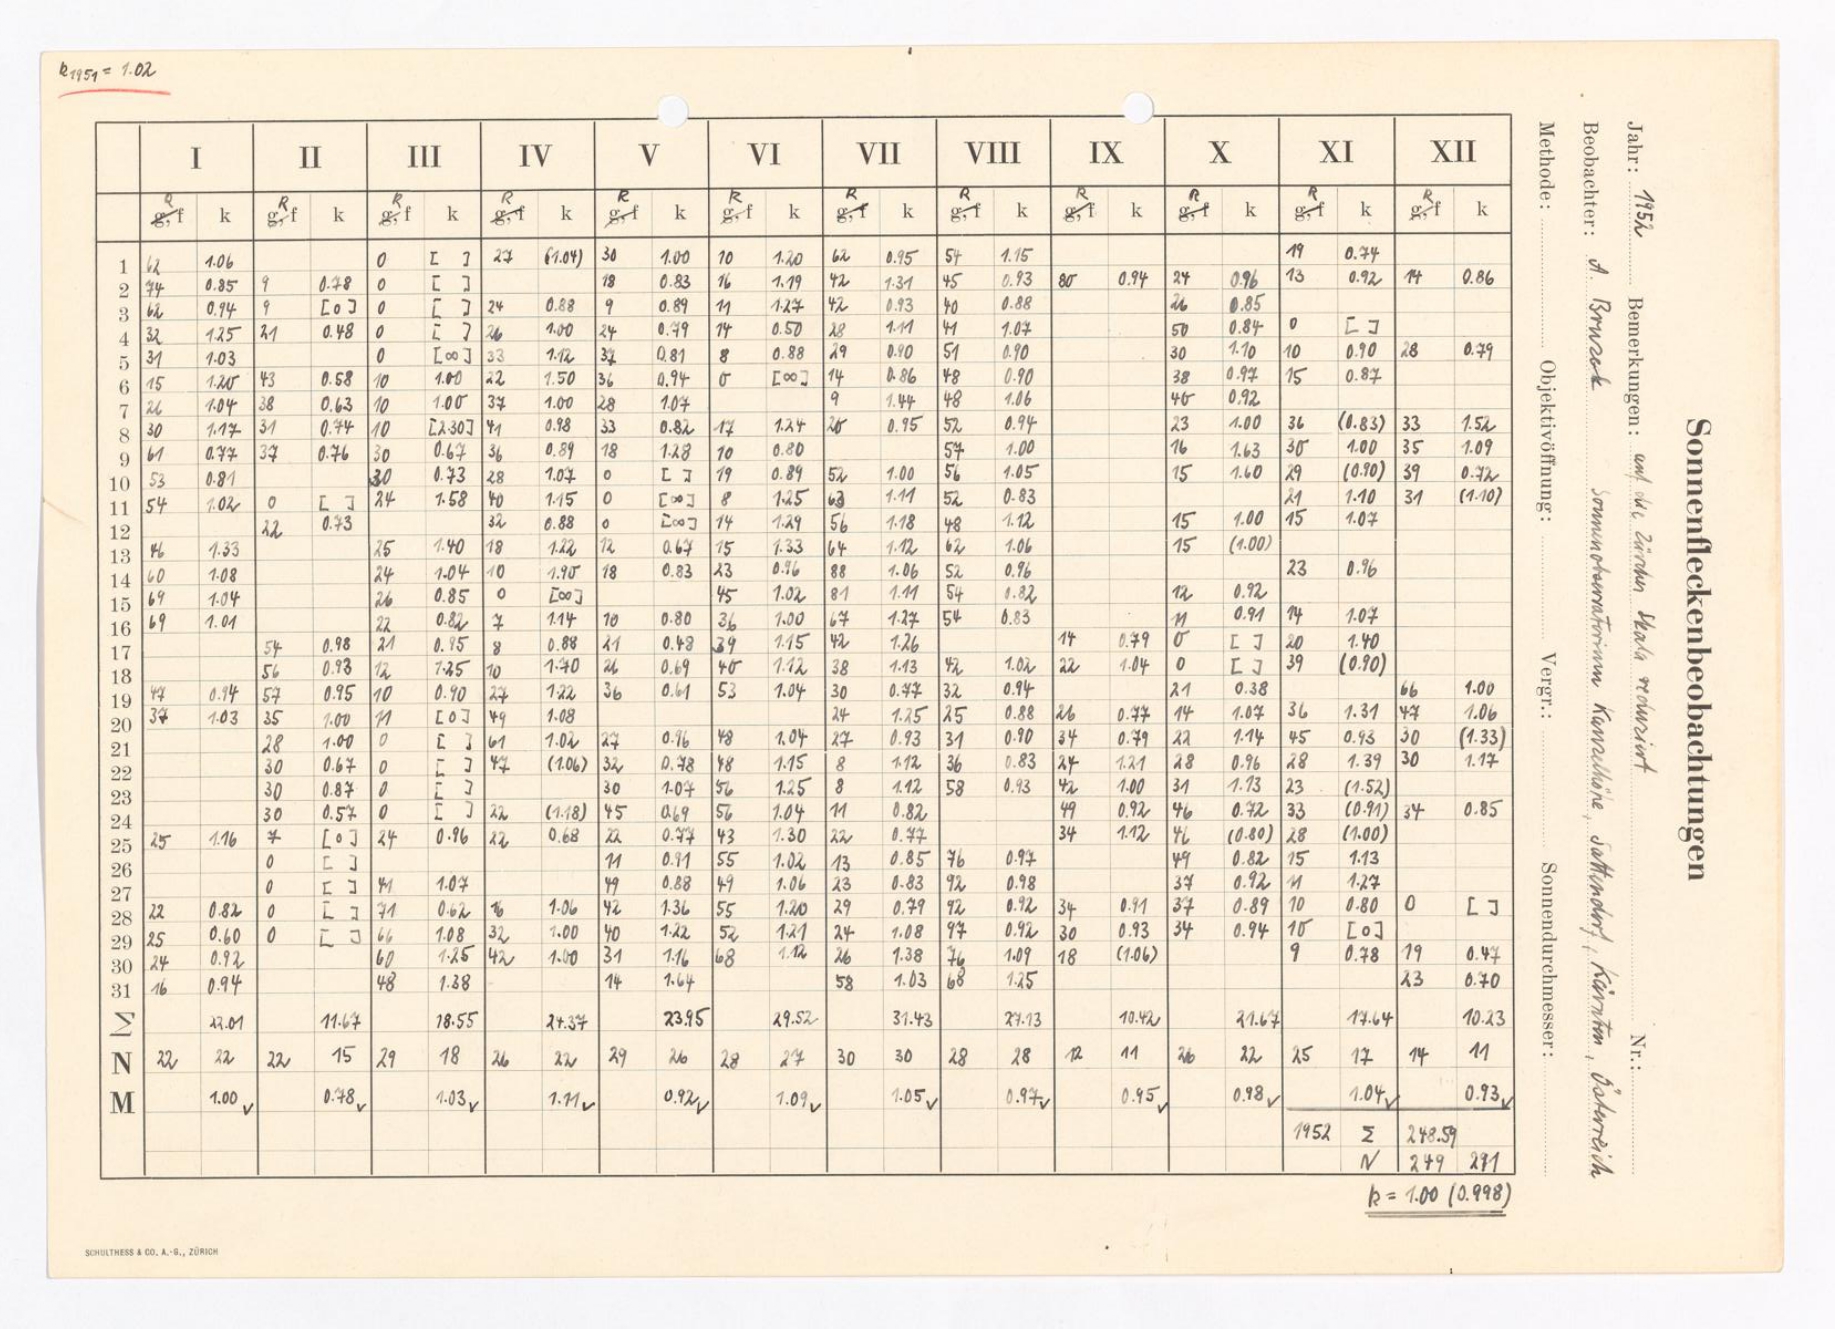 k1951 = 1.02
Sonnenfleckenbeobachtungen
Jahr: 1952 Bemerkungen: auf die Zürcher Skala reduziert Nr.:
Beobachter: A. Bruzek Sonnenobservatorium Kanzelhöhe, Sattendorf, Kärnten, Österreich
Methode: Objektivöffnung: Vergr.: Sonnendurchmesser:
I II III IV V VI VII VIII IX X XI XII
R R R R R R R R R R R R
g, f k g, f k g, f k g, f k g, f k g, f k g, f k g, f k g, f k g, f k g, f k g, f k
1 62 1.06 0 [ ] 27 (1.04) 30 1.00 10 1.20 62 0.95 54 1.15 19 0.74
2 74 0.85 9 0.78 0 [ ] 18 0.83 16 1.19 42 1.31 45 0.93 80 0.94 24 0.96 13 0.92 14 0.86
3 62 0.94 9 [0] 0 [ ] 24 0.88 9 0.89 11 1.27 42 0.93 40 0.88 26 0.85
4 32 1.25 21 0.48 0 [ ] 26 1.00 24 0.79 14 0.50 28 1.11 41 1.07 50 0.84 0 [ ]
5 31 1.03 0 [∞] 33 1.12 37 0.81 8 0.88 29 0.90 51 0.90 30 1.10 10 0.90 28 0.79
6 15 1.20 43 0.58 10 1.00 22 1.50 36 0.94 0 [∞] 14 0.86 48 0.90 38 0.97 15 0.87
7 26 1.04 38 0.63 10 1.00 37 1.00 28 1.07 9 1.44 48 1.06 40 0.92
8 30 1.17 31 0.74 10 [2.30] 41 0.98 33 0.82 17 1.24 20 0.95 52 0.94 23 1.00 36 (0.83) 33 1.52
9 61 0.77 37 0.76 30 0.67 36 0.89 18 1.28 10 0.80 57 1.00 16 1.63 30 1.00 35 1.09
10 53 0.81 30 0.73 28 1.07 0 [ ] 19 0.89 52 1.00 56 1.05 15 1.60 29 (0.90) 39 0.72
11 54 1.02 0 [ ] 24 1.58 40 1.15 0 [∞] 8 1.25 63 1.11 52 0.83 21 1.10 31 (1.10)
12 22 0.73 32 0.88 0 [∞] 14 1.29 56 1.18 48 1.12 15 1.00 15 1.07
13 46 1.33 25 1.40 18 1.22 12 0.67 15 1.33 64 1.12 62 1.06 15 (1.00)
14 60 1.08 24 1.04 10 1.90 18 0.83 23 0.96 88 1.06 52 0.96 23 0.96
15 69 1.04 26 0.85 0 [∞] 45 1.02 81 1.11 54 0.82 12 0.92
16 69 1.01 22 0.82 7 1.14 10 0.80 36 1.00 67 1.27 54 0.83 11 0.91 14 1.07
17 54 0.98 21 0.95 8 0.88 21 0.48 39 1.15 42 1.26 14 0.79 0 [ ] 20 1.40
18 56 0.93 12 1.25 10 1.70 26 0.69 40 1.12 38 1.13 42 1.02 22 1.04 0 [ ] 39 (0.90)
19 47 0.94 57 0.95 10 0.90 27 1.22 36 0.61 53 1.04 30 0.77 32 0.94 21 0.38 66 1.00
20 37 1.03 35 1.00 11 [0] 49 1.08 24 1.25 25 0.88 26 0.77 14 1.07 36 1.31 47 1.06
21 28 1.00 0 [ ] 61 1.02 27 0.96 48 1.04 27 0.93 31 0.90 34 0.79 22 1.14 45 0.93 30 (1.33)
22 30 0.67 0 [ ] 47 (1.06) 32 0.78 48 1.15 8 1.12 36 0.83 24 1.21 28 0.96 28 1.39 30 1.17
23 30 0.87 0 [ ] 30 1.07 56 1.25 8 1.12 58 0.93 42 1.00 31 1.13 23 (1.52)
24 30 0.57 0 [ ] 22 (1.18) 45 0.69 56 1.04 11 0.82 49 0.92 46 0.72 33 (0.91) 34 0.85
25 25 1.16 7 [0] 24 0.96 22 0.68 22 0.77 43 1.30 22 0.77 34 1.12 46 (0.80) 28 (1.00)
26 0 [ ] 11 0.91 55 1.02 13 0.85 76 0.97 49 0.82 15 1.13
27 0 [ ] 41 1.07 49 0.88 49 1.06 23 0.83 92 0.98 37 0.92 11 1.27
28 22 0.82 0 [ ] 71 0.62 16 1.06 42 1.36 55 1.20 29 0.79 92 0.92 34 0.91 37 0.89 10 0.80 0 [ ]
29 25 0.60 0 [ ] 66 1.08 32 1.00 40 1.22 52 1.21 24 1.08 97 0.92 30 0.93 34 0.94 10 [0]
30 24 0.92 60 1.25 42 1.00 31 1.16 68 1.12 26 1.38 76 1.09 18 (1.06) 9 0.78 19 0.47
31 16 0.94 48 1.38 14 1.64 58 1.03 68 1.25 23 0.70
Σ 22.01 11.67 18.55 24.37 23.95 29.52 31.43 27.13 10.42 21.67 17.64 10.23
N 22 22 22 15 29 18 26 22 29 26 28 27 30 30 28 28 12 11 26 22 25 17 14 11
M 1.00 ✓ 0.78 ✓ 1.03 ✓ 1.11 ✓ 0.92 ✓ 1.09 ✓ 1.05 ✓ 0.97 ✓ 0.95 ✓ 0.98 ✓ 1.04 ✓ 0.93 ✓
1952 Σ 248.59
N 249 291
k = 1.00 (0.998)
SCHULTHESS & CO. A.-G., ZÜRICH